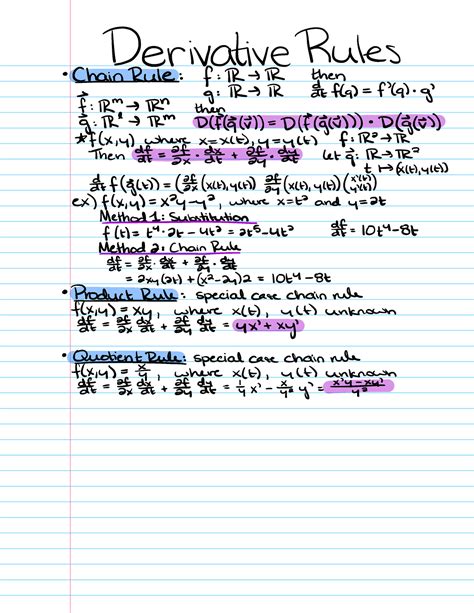 Derivative Rules
• Chain Rule: f: ℝ → ℝ then
g: ℝ → ℝ d/dt f(g) = f'(g) · g'
f⃗: ℝᵐ → ℝⁿ then
g⃗: ℝˡ → ℝᵐ D(f⃗(g⃗(v⃗))) = D(f⃗(g⃗(v⃗))) · D(g⃗(v⃗))
*f(x,y) where x=x(t), y=y(t) f: ℝ² → ℝ
Then df/dt = ∂f/∂x · dx/dt + ∂f/∂y · dy/dt let g⃗: ℝ → ℝ²
t ↦ (x(t), y(t))
d/dt f(g⃗(t)) = (∂f/∂x (x(t), y(t)) ∂f/∂y (x(t), y(t))) (x'(t) y'(t))
ex) f(x,y) = x²y - y², where x=t² and y=2t
Method 1: Substitution
f(t) = t⁴ · 2t - 4t² = 2t⁵ - 4t² df/dt = 10t⁴ - 8t
Method 2: Chain Rule
df/dt = ∂f/∂x · dx/dt + ∂f/∂y · dy/dt
= 2xy(2t) + (x² - 2y)2 = 10t⁴ - 8t
• Product Rule: special case chain rule
f(x,y) = xy, where x(t), y(t) unknown
df/dt = ∂f/∂x dx/dt + ∂f/∂y dy/dt = yx' + xy'
• Quotient Rule: special case chain rule
f(x,y) = x/y, where x(t), y(t) unknown
df/dt = ∂f/∂x dx/dt + ∂f/∂y dy/dt = 1/y x' - x/y² y' = (x'y - xy')/y²